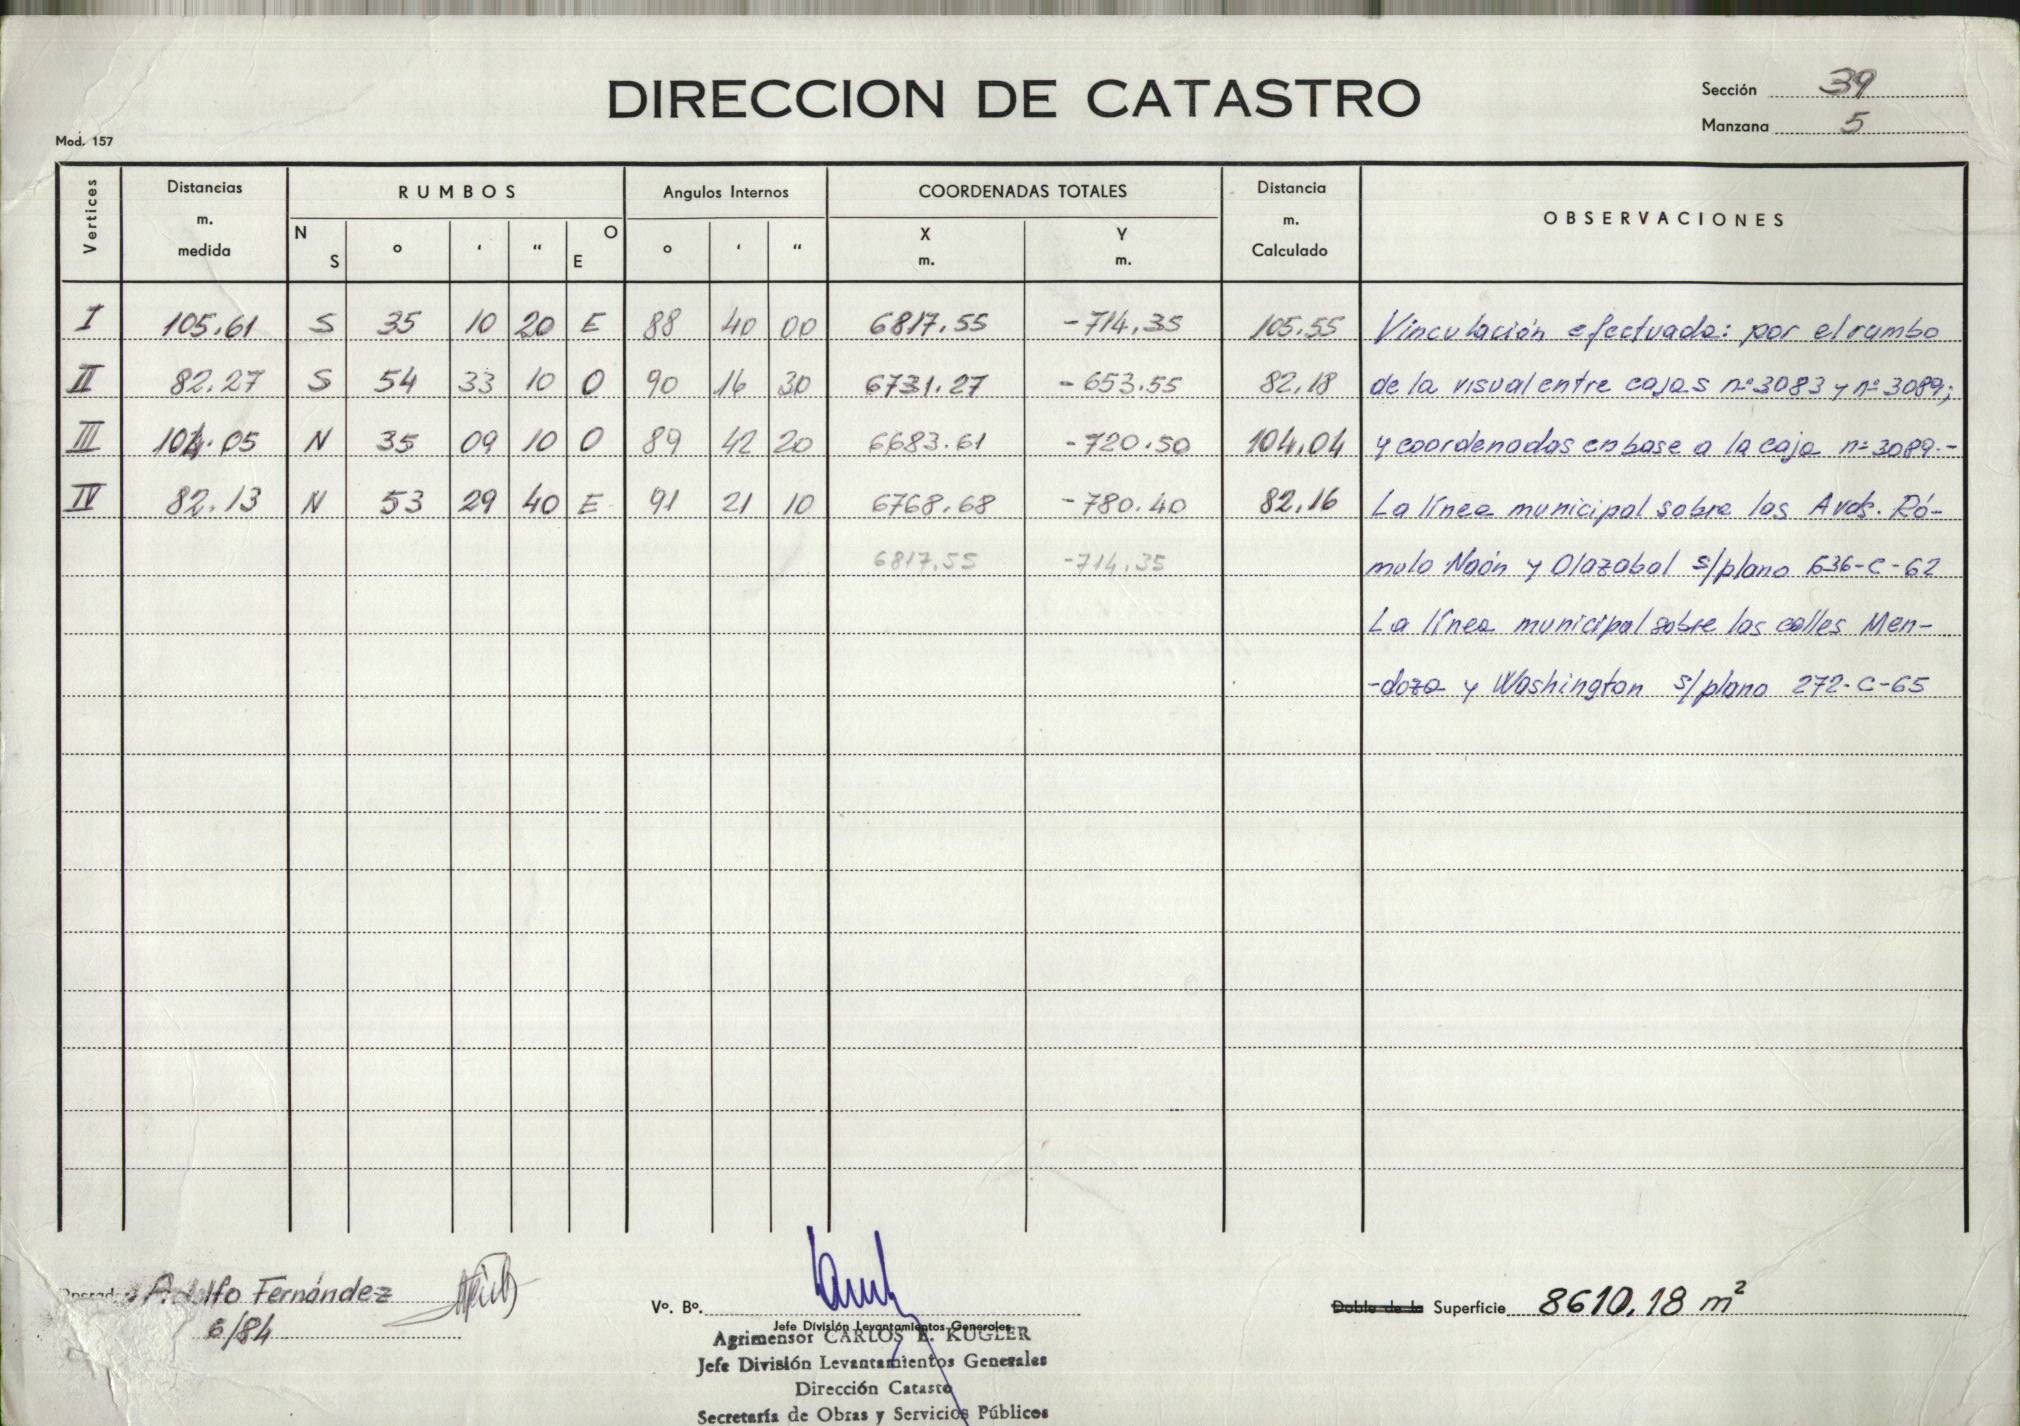 DIRECCION DE CATASTRO
Sección 39
Manzana 5
Mod. 157
Vertices
Distancias m. medida
RUMBOS
N S ° ' " O E
Angulos Internos
° ' "
COORDENADAS TOTALES
X m. Y m.
Distancia m. Calculado
OBSERVACIONES
I 105.61 S 35 10 20 E 88 40 00 6817.55 -714.35 105.55 Vinculación efectuada: por el rumbo
II 82.27 S 54 33 10 O 90 16 30 6731.27 -653.55 82,18 de la visual entre cajas nº 3083 y nº 3089;
III 104.05 N 35 09 10 O 89 42 20 6683.61 -720.50 104,04 y coordenadas en base a la caja nº 3089.-
IV 82.13 N 53 29 40 E 91 21 10 6768.68 -780.40 82,16 La línea municipal sobre las Avds. Ró-
6817.55 -714.35 mulo Naón y Olazabal s/plano 636-C-62
La línea municipal sobre las calles Men-
-doza y Washington s/plano 272-C-65
Adolfo Fernández
6/84
Vº. Bº.
Jefe División Levantamientos Generales
Agrimensor CARLOS E. KUGLER
Jefe División Levantamientos Generales
Dirección Catasto
Secretaría de Obras y Servicios Públicos
Doble de la Superficie 8610,18 m²